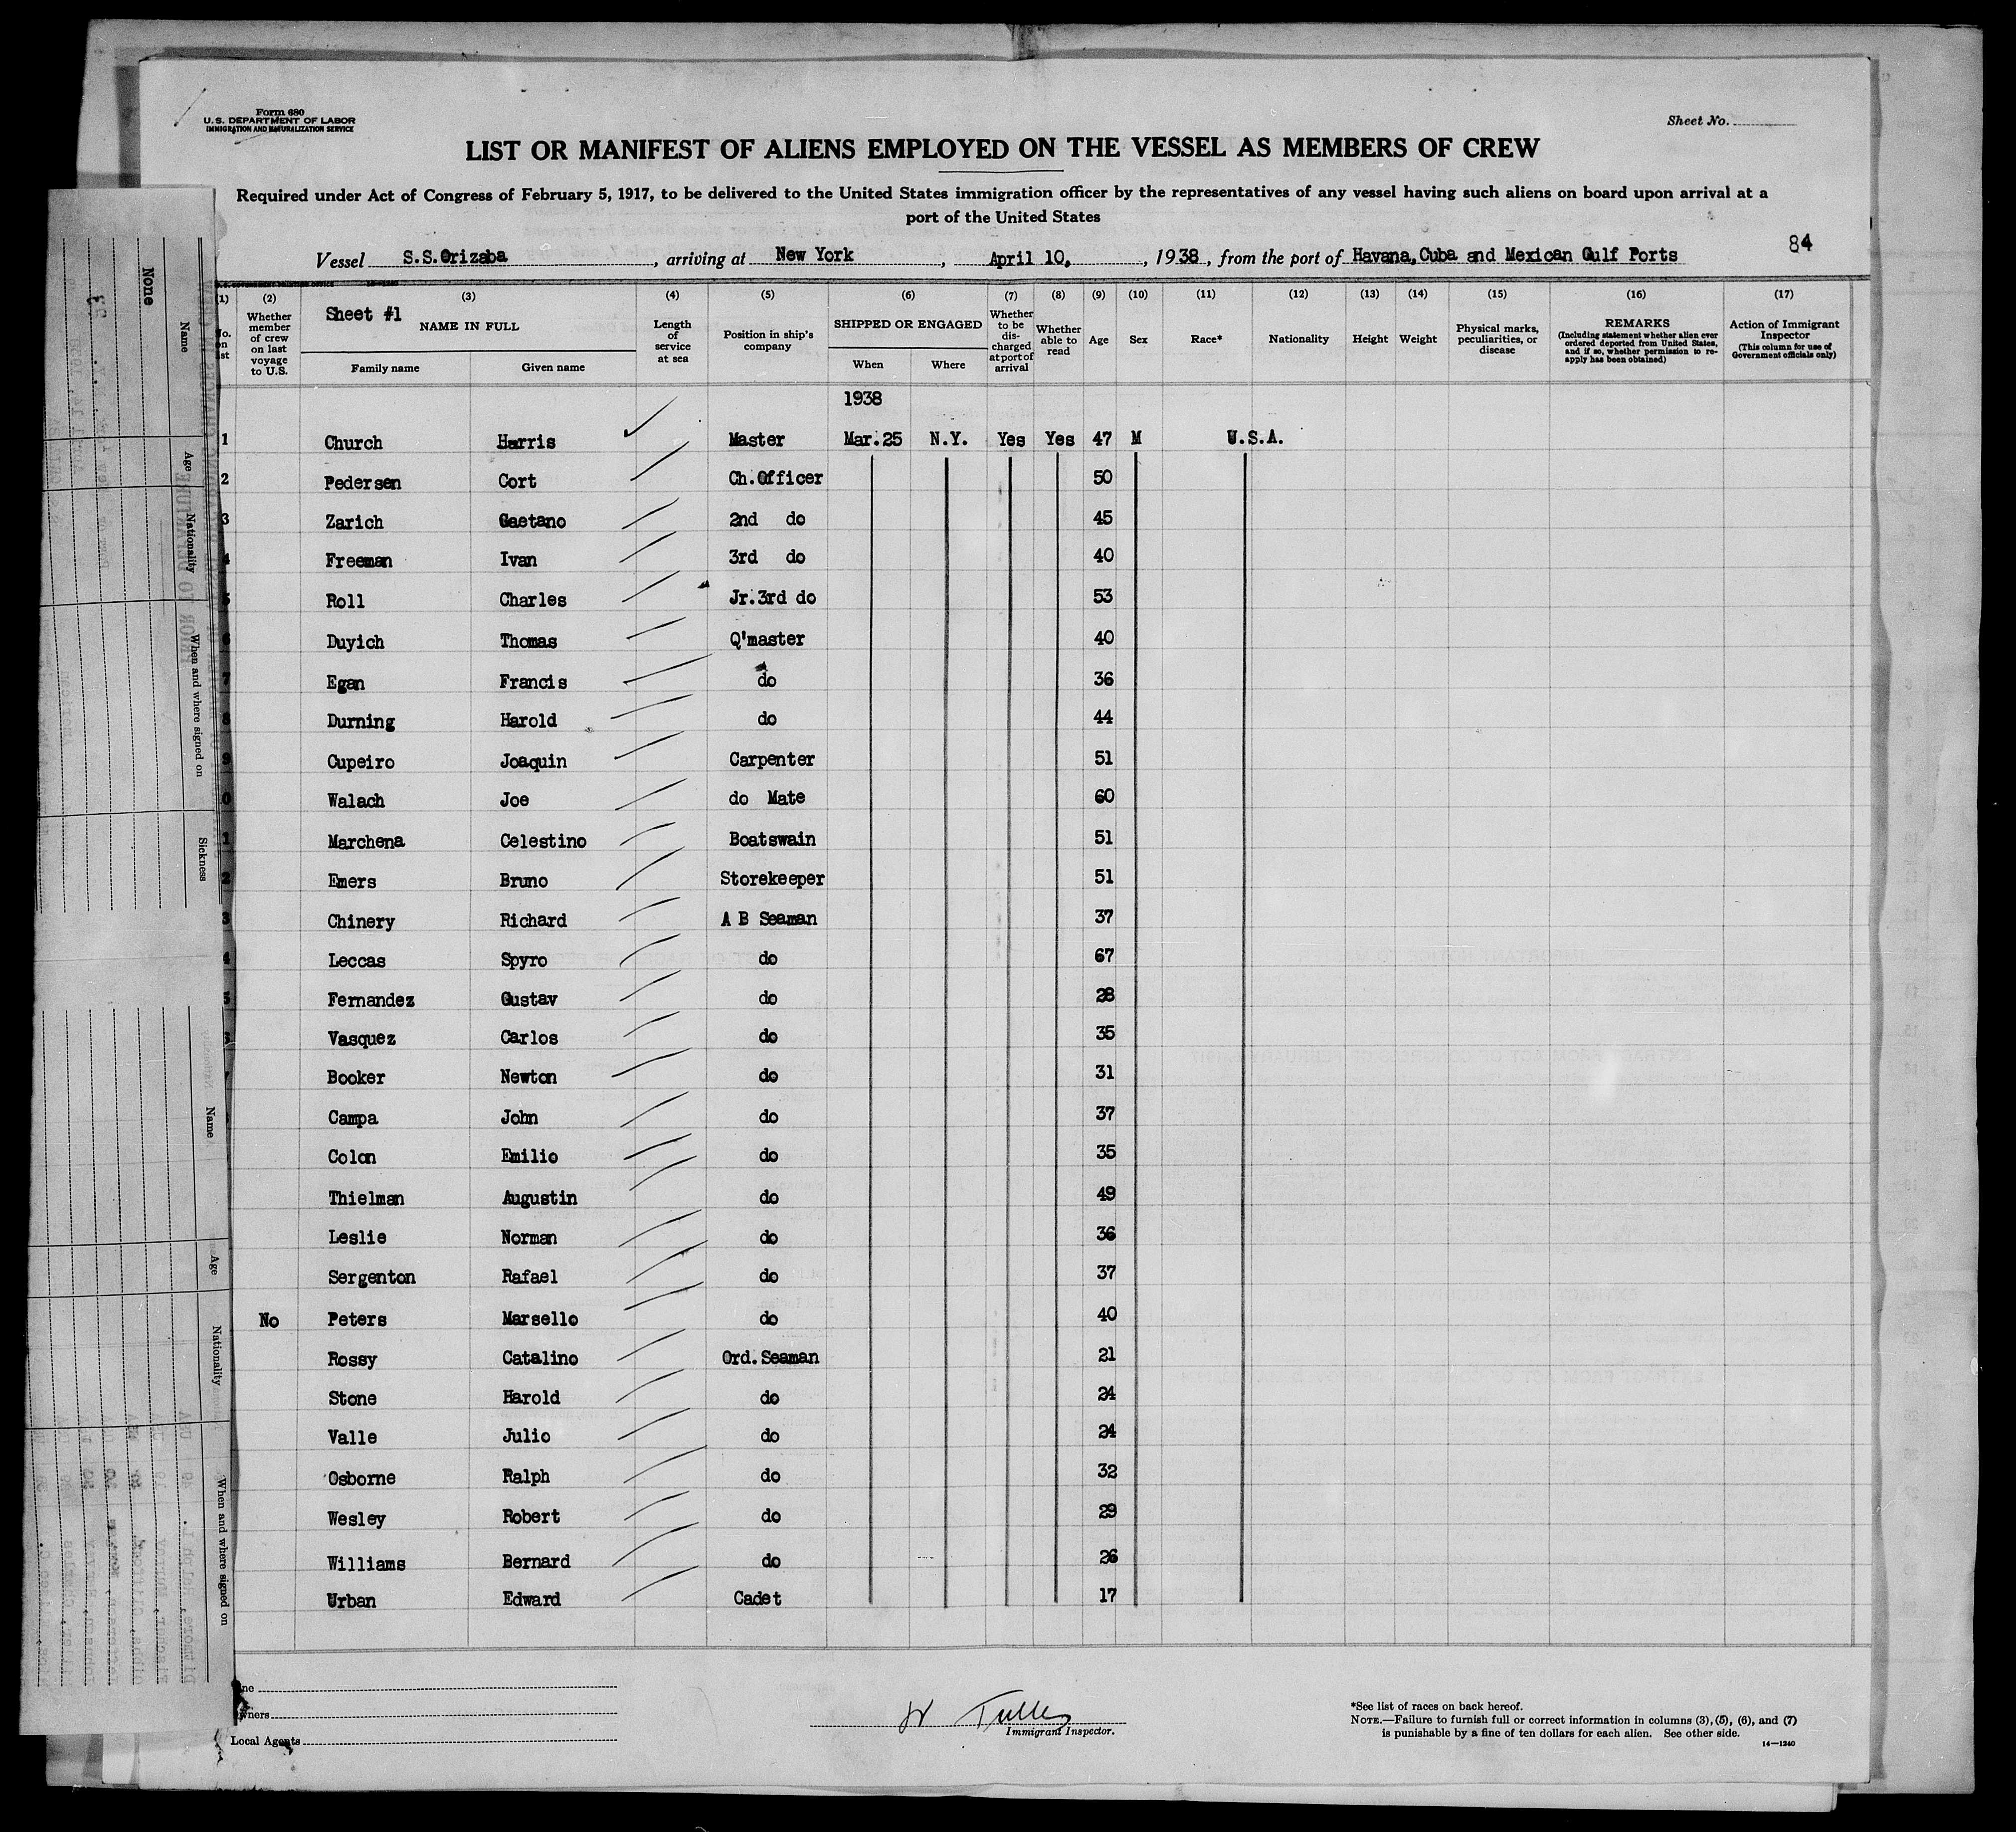 Form 680
U.S. DEPARTMENT OF LABOR
IMMIGRATION AND NATURALIZATION SERVICE
Sheet No.
LIST OR MANIFEST OF ALIENS EMPLOYED ON THE VESSEL AS MEMBERS OF CREW
Required under Act of Congress of February 5, 1917, to be delivered to the United States immigration officer by the representatives of any vessel having such aliens on board upon arrival at a
port of the United States
84
Vessel S.S.Orizaba, arriving at New York, April 10, , 1938, from the port of Havana, Cuba and Mexican Gulf Ports
(1) (2) (3) (4) (5) (6) (7) (8) (9) (10) (11) (12) (13) (14) (15) (16) (17)
Sheet #1
Whether member of crew on last voyage to U.S.
NAME IN FULL
Family name Given name
Length of service at sea
Position in ship's company
SHIPPED OR ENGAGED
When Where
Whether to be discharged at port of arrival
Whether able to read
Age Sex Race* Nationality Height Weight
Physical marks, peculiarities, or disease
REMARKS
(Including statement whether alien ever ordered deported from United States, and if so, whether permission to reapply has been obtained)
Action of Immigrant Inspector
(This column for use of Government officials only)
1938
1 Church Harris Master Mar.25 N.Y. Yes Yes 47 M U.S.A.
2 Pedersen Cort Ch.Officer 50
3 Zarich Gaetano 2nd do 45
4 Freeman Ivan 3rd do 40
5 Roll Charles Jr.3rd do 53
6 Duyich Thomas Q'master 40
7 Egan Francis do 36
8 Durning Harold do 44
9 Cupeiro Joaquin Carpenter 51
0 Walach Joe do Mate 60
1 Marchena Celestino Boatswain 51
2 Emers Bruno Storekeeper 51
3 Chinery Richard A B Seaman 37
4 Leccas Spyro do 67
5 Fernandez Gustav do 28
Vasquez Carlos do 35
Booker Newton do 31
Campa John do 37
Colon Emilio do 35
Thielman Augustin do 49
Leslie Norman do 36
Sergenton Rafael do 37
No Peters Marsello do 40
Rossy Catalino Ord.Seaman 21
Stone Harold do 24
Valle Julio do 24
Osborne Ralph do 32
Wesley Robert do 29
Williams Bernard do 26
Urban Edward Cadet 17
Local Agents
Immigrant Inspector.
*See list of races on back hereof.
NOTE.—Failure to furnish full or correct information in columns (3), (5), (6), and (7)
is punishable by a fine of ten dollars for each alien. See other side.
14—1240
None
Name
Age
Nationality
When and where signed on
Sickness
Name
Age
Nationality
When and where signed on